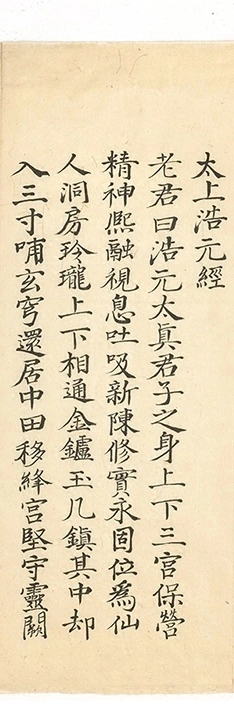 太上浩元經
老君曰浩元太真君子之身上下三宮保營
精神熙融視息吐吸新陳修實永固位為仙
人洞房玲瓏上下相通金鑪玉几鎮其中却
入三寸哺玄穹還居中田移絳宮堅守靈闕